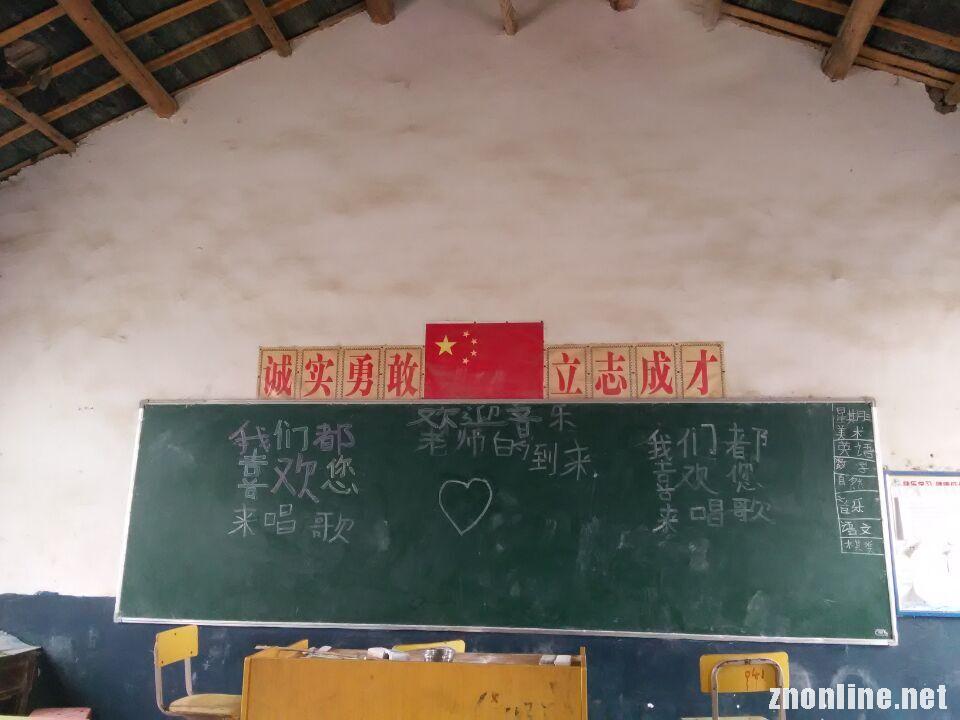 诚实勇敢
立志成才
欢迎喜乐
老师的到来.
我们都
喜欢您
来唱歌
我们都
喜欢您
来唱歌
星期
美术
英语
数学
自然
音乐
语文
041
znonline.net